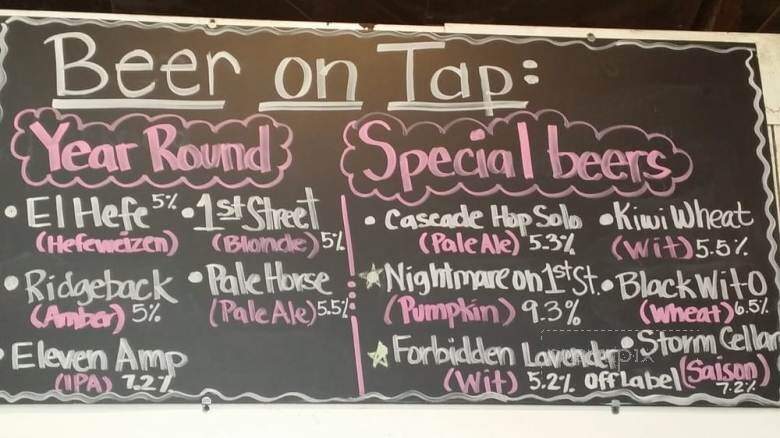 Beer on Tap:
Year Round
• El Hefe 5%
(Hefeweizen)
• 1st Street
(Blonde) 5%
• Ridgeback
(Amber) 5%
• Pale Horse
(Pale Ale) 5.5%
• Eleven Amp
(IPA) 7.2%
Special beers
• Cascade Hop Solo
(Pale Ale) 5.3%
• Kiwi Wheat
(Wit) 5.5%
Nightmare on 1st St.
(Pumpkin) 9.3%
• Black Wit O
(Wheat) 6.5%
Forbidden Lavender
(Wit) 5.2%
• Storm Cellar
Off Label (Saison)
7.2%